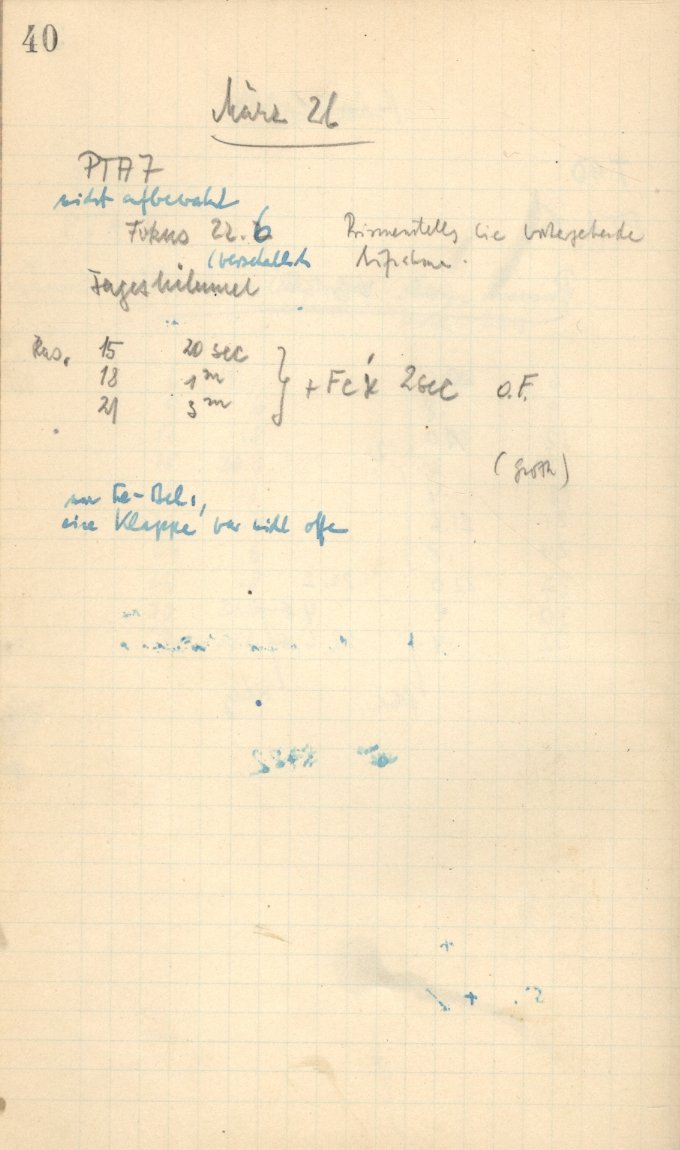 40
März 26
PTA 7
nicht aufbewahrt
Fokus 22.6 Prismenstellg wie vorhergehende
Aufnahme.
Tageshimmel
Kas. 15 20 sec
18 1 m } + Fe 2 sec o.F.
21 3 m
(Groth)
nur Fe-Bel.,
eine Klappe war nicht offen